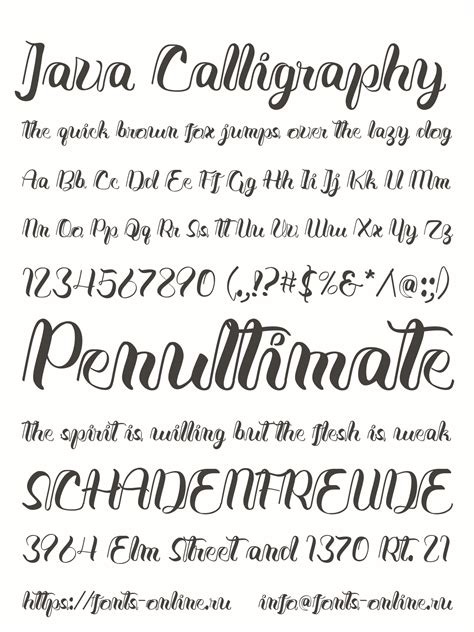 Java Calligraphy
the quick brown fox jumps over the lazy dog
Aa Bb Cc Dd Ee Ff Gg Hh Ii Jj Kk Ll Mm
Nn Oo Pp Qq Rr Ss Tt Uu Vv Ww Xx Yy Zz
1234567890 (.,!?#$%&*/\@:;)
Penultimate
the spirit is willing but the flesh is weak
SCHADENFREUDE
3964 Elm Street and 1370 Rt. 21
https://fonts-online.ru info@fonts-online.ru